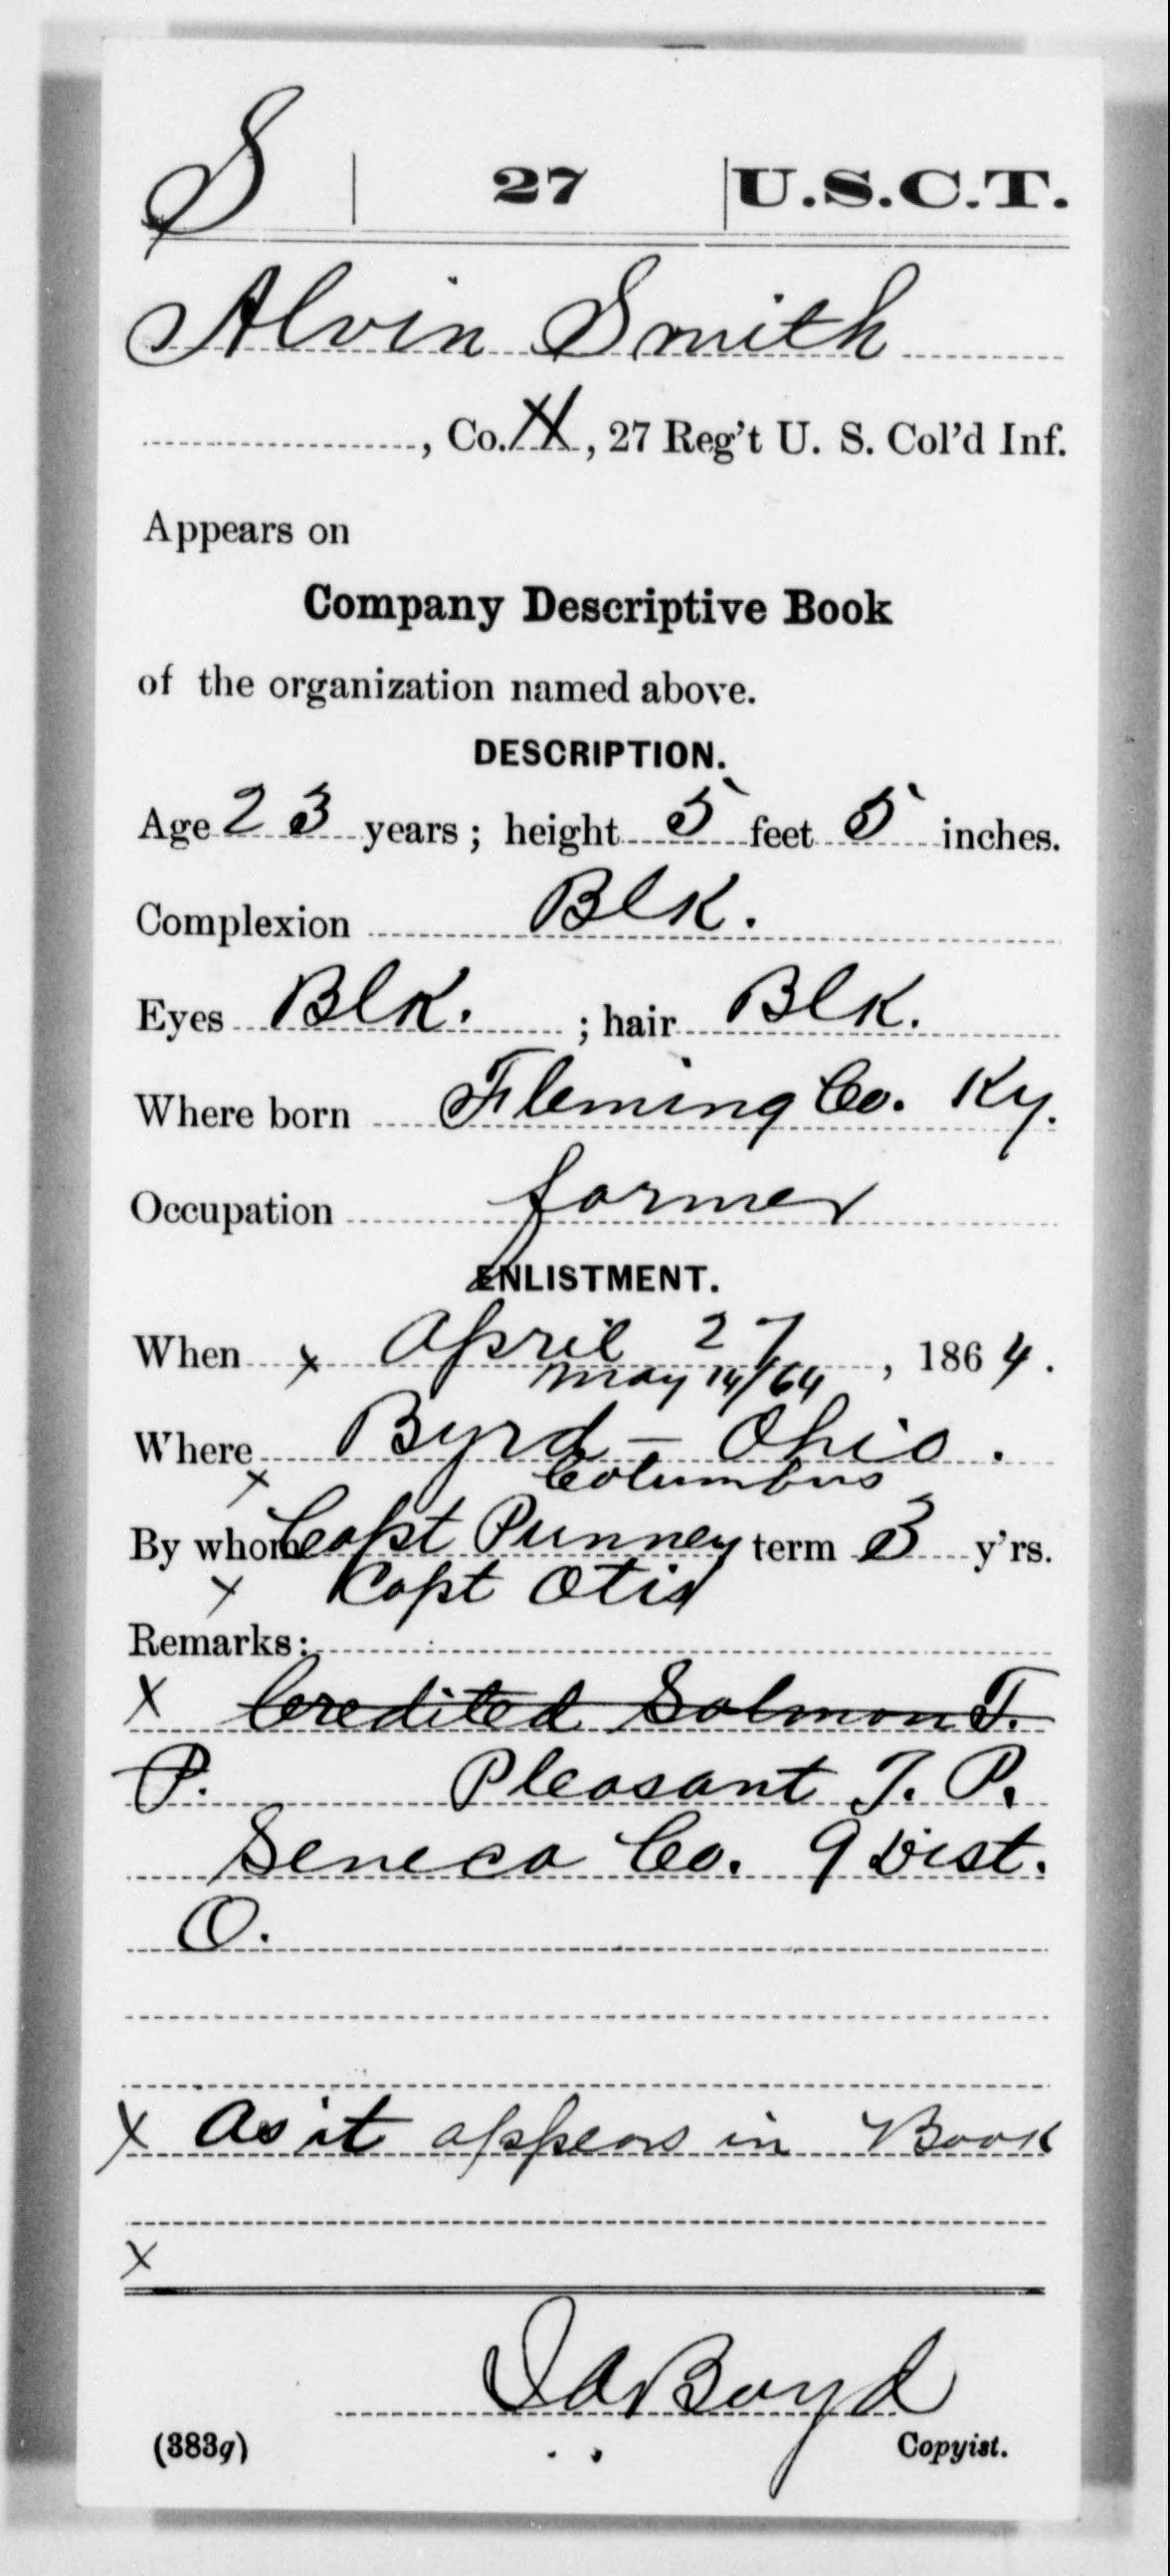 S | 27 | U.S.C.T.
Alvin Smith
, Co. H, 27 Reg't U. S. Col'd Inf.
Appears on
Company Descriptive Book
of the organization named above.
DESCRIPTION.
Age 23 years; height 5 feet 5 inches.
Complexion Blk.
Eyes Blk. ; hair Blk.
Where born Fleming Co. Ky.
Occupation farmer
ENLISTMENT.
When x April 27, 1864.
May 14/64
Where Byrd - Ohio.
x Columbus
By whom Capt Punney term 3 y'rs.
x Capt Otis
Remarks:
x Credited Salmon T.
P. Pleasant T. P.
Seneca Co. 9 Dist.
O.
x As it appears in Book
x
Boyd
(383g) Copyist.